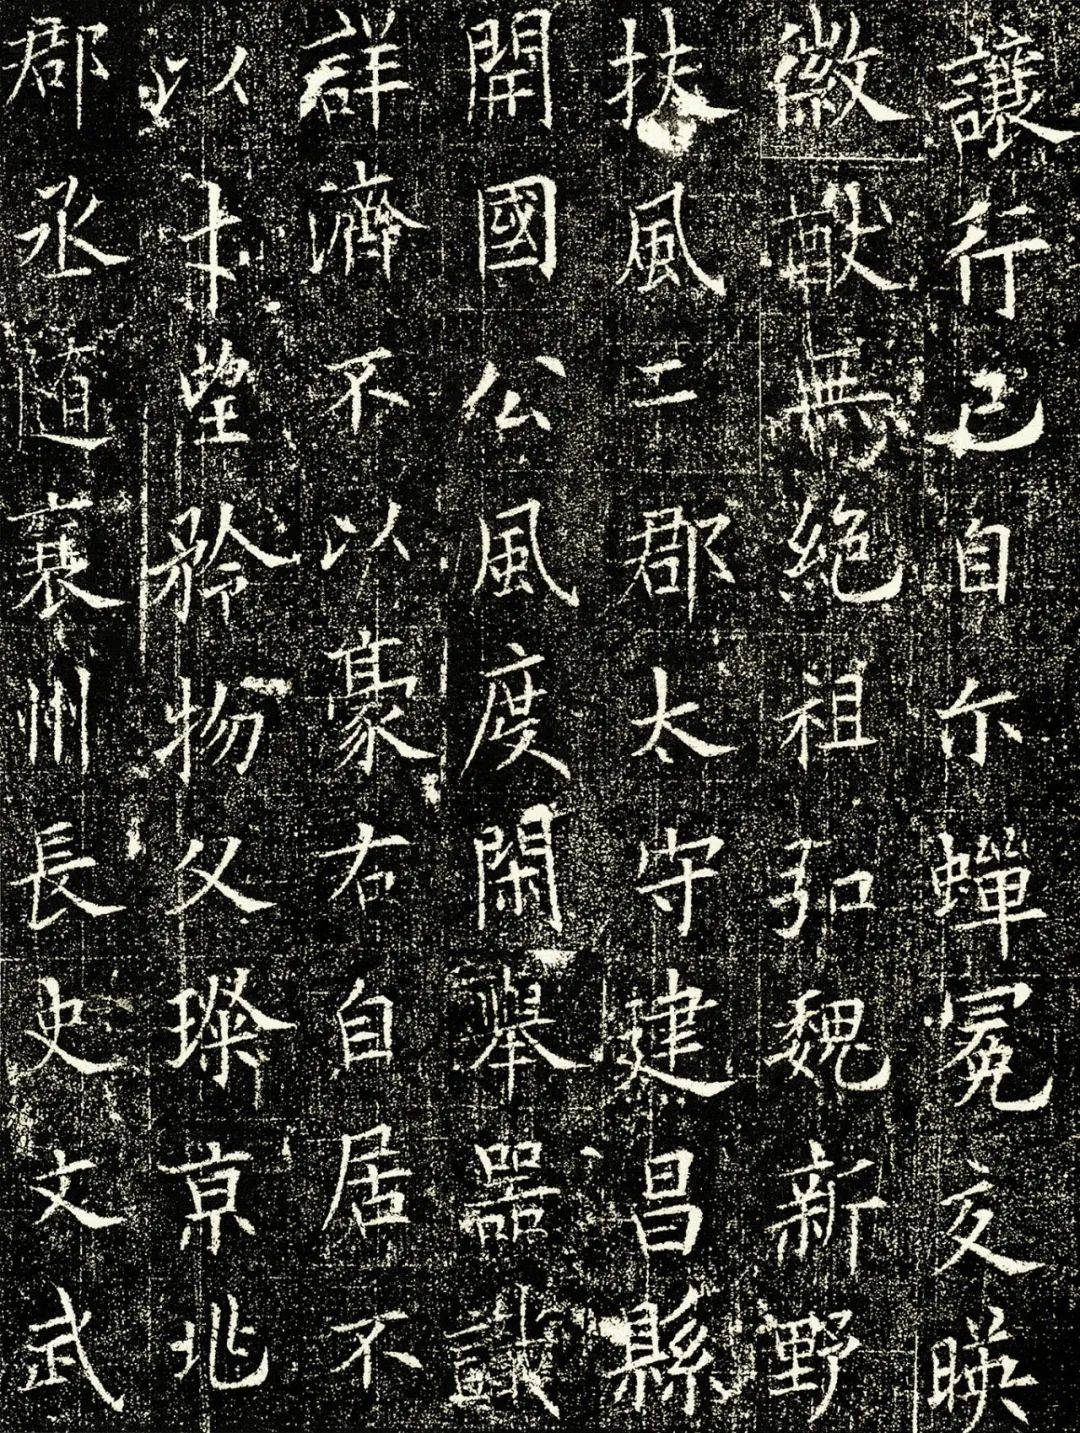 讓行己自尒蟬冕交暎
徽猷無絕祖弘魏新野
扶風二郡太守建昌縣
開國公風度閑舉器識
詳濟不以豪右自居不
以才望矜物父璨京兆
郡丞随襄州長史文武